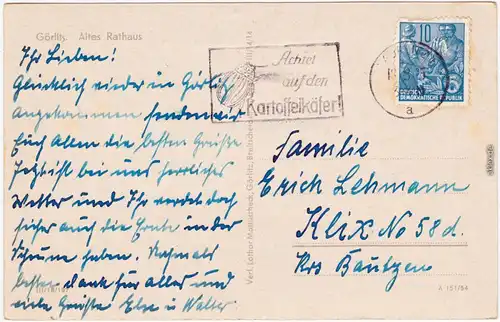 Görlitz. Altes Rathaus
Ihr Lieben!
Glücklich wieder in Görlitz
angekommen senden wir
Euch Allen die besten Grüße
Jetzt ist bei uns herrliches
Wetter und Ihr werdet doch
sicher auch die Ernte in der
Scheune haben. Nochmals
besten Dank für alles und
viele Grüße Else u Walter
Achtet
auf den
Kartoffelkäfer!
a
10
DEUTSCHE
DEMOKRATISCHE REPUBLIK
Familie
Erich Lehmann
Klix No 58d.
Krs Bautzen
A 151/54